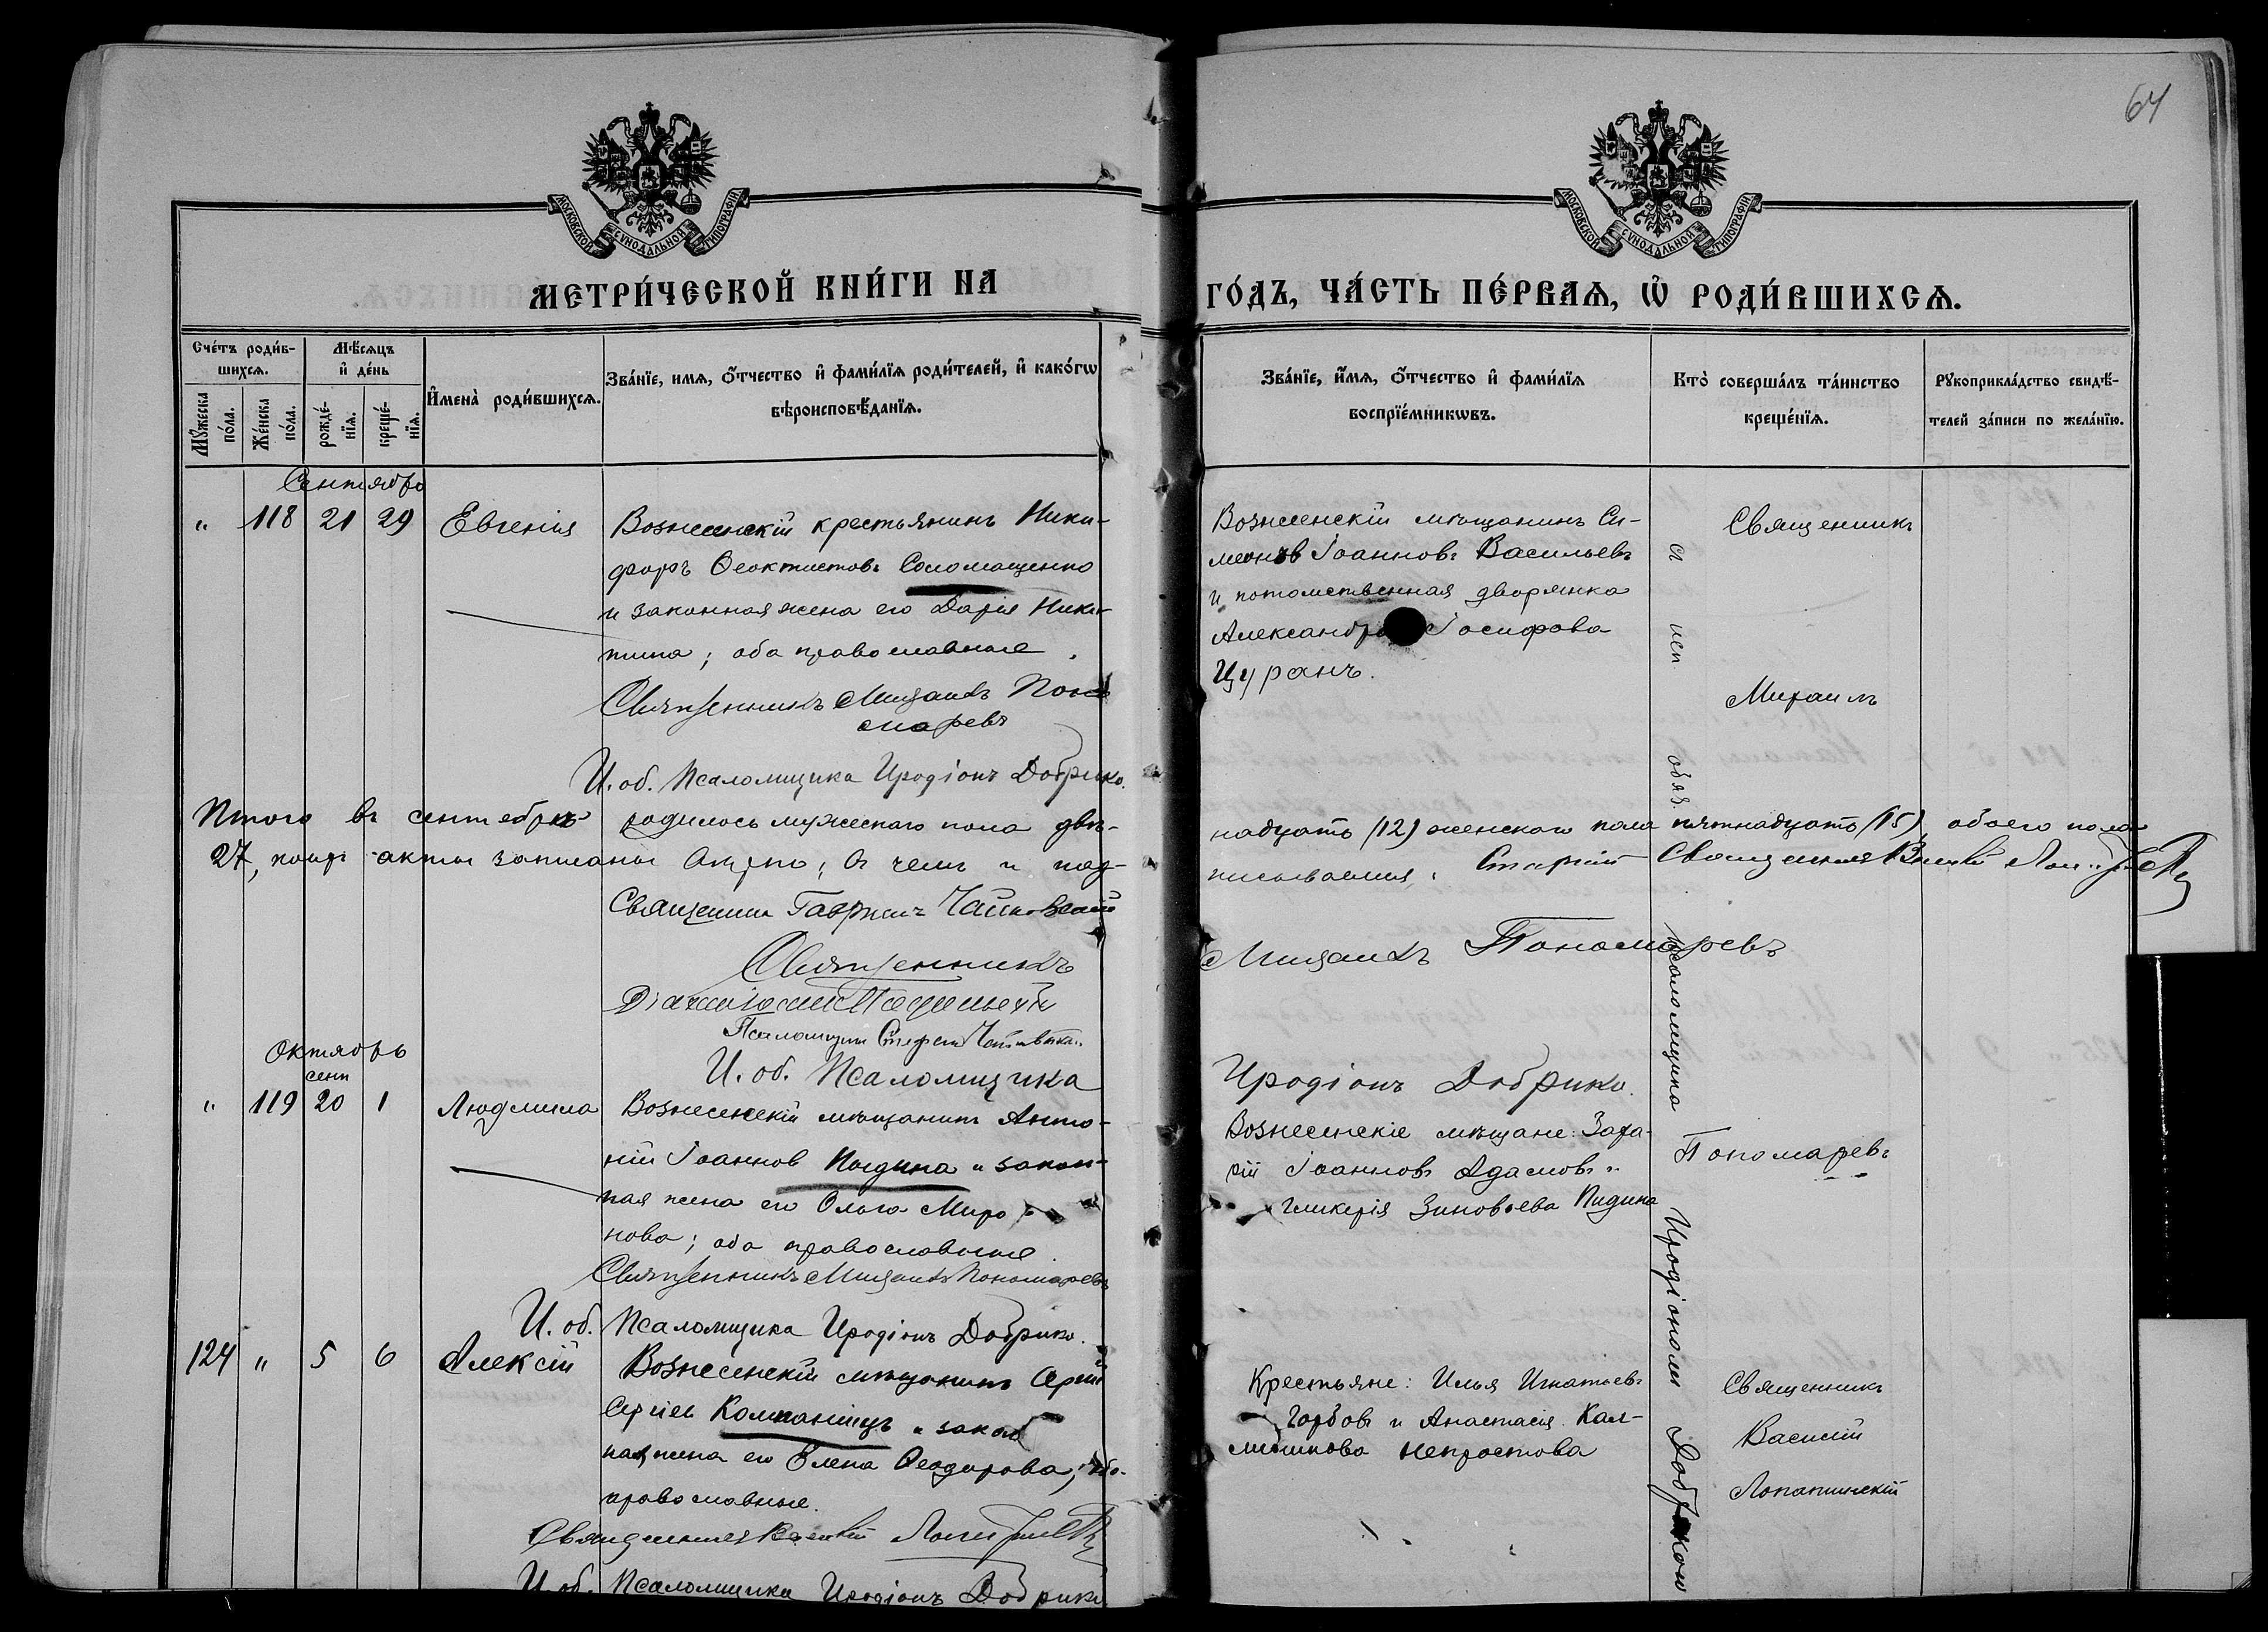 64
МОСКОВСКОЙ СѴНОДАЛЬНОЙ ТИПОГРАФІИ
МОСКОВСКОЙ СѴНОДАЛЬНОЙ ТИПОГРАФІИ
МЕТРИ́ЧЕСКОЙ КНИ́ГИ НА
ГО́ДЪ, ЧА́СТЬ ПЕ́РВАЯ, Ѡ҆ РОДИ́ВШИХСЯ.
Сче́тъ роди́в-
шихся.
Мѣ́сяцъ
и҆ де́нь
Му́жеска
по́ла.
Же́нска
по́ла.
рожде́-
нїя.
креще́-
нїя.
И҆мена̀ роди́вшихся.
Зва́нїе, имя, ѻ҆́тчество и҆ фами́лїя роди́телей, и҆ како́гѡ
вѣроисповѣ́данїя.
Зва́нїе, и҆́мя, ѻ҆́тчество и҆ фами́лїя
воспрїе́мникѡвъ.
Кто̀ соверша́лъ та́инство
креще́нїя.
Рꙋкоприкла́дство свидѣ́-
телей за́писи по жела́нїю.
Сентябрь
" 118 21 29 Евгенія
Вознесенскій крестьянинъ Ники-
форъ Ѳеоктистовъ Соломащенко
и законная жена его Дарія Ники-
тина; оба православные.
Священникъ Михаилъ Поно
маревъ
И. об. Псаломщика Иродіонъ Добрико.
Вознесенскій мѣщанинъ Си-
меонъ Іоанновъ Васильевъ
и потомственная дворянка
Александра Іосифова
Цуранъ.
Священникъ
Михаилъ
Пономаревъ
съ исп обяз. псаломщика Иродіономъ Добриков
Итого въ сентябрѣ родилось мужескаго пола двѣ-
надцать (12) женскаго пола пятнадцать (15), обоего пола
27, коихъ акты записаны вѣрно, въ чемъ и под-
писываемся: Старшій Священникъ Василій
Священникъ Гавріилъ Чайковскій
Священникъ
Михаилъ Пономаревъ
Псаломщикъ Стефанъ
И. об. Псаломщика
Иродіонъ Добрико.
Октябрь
сент
" 119 20 1 Людмила
Вознесенскій мѣщанинъ Анто-
ній Іоаннов Пидина и закон-
ная жена его Ольга Миро
нова; оба православные.
Священникъ Михаилъ Пономаревъ
И. об. Псаломщика Иродіонъ Добрико.
Вознесенскіе мѣщане: Заха-
рій Іоанновъ Адамовъ и
Гликерія Зиновьева Пидина
124 " 5 6 Алексій
Вознесенскій мѣщанинъ Сергій
Сергіев Компаніецъ и закон
ная жена его Елена Ѳеодорова; оба
православные.
Священникъ Василій
И. об. Псаломщика Иродіонъ Добрико
Крестьяне: Илья Игнатьевъ
Горбовъ и Анастасія Кал-
Непростова
Священникъ
Василій
Лопатинскій